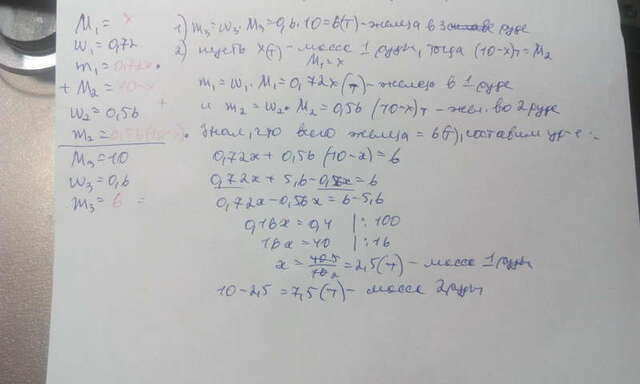 M₁ = x
w₁ = 0,72
m₁ = 0,72x
+ M₂ = 10-x
w₂ = 0,56
m₂ = 0,56(10-x)
M₃ = 10
w₃ = 0,6
m₃ = 6
1) m₃ = w₃ · M₃ = 0,6 · 10 = 6 (т) - железа в 3 руде
2) пусть x (т) - масса 1 руды, тогда (10-x) т = M₂
M₁ = x
m₁ = w₁ · M₁ = 0,72x (т) - железо в 1 руде
и m₂ = w₂ · M₂ = 0,56 (10-x) т - жел. во 2 руде
Зная, что всего железа = 6 (т), составим ур-е:
0,72x + 0,56 (10-x) = 6
0,72x + 5,6 - 0,56x = 6
0,72x - 0,56x = 6 - 5,6
0,16x = 0,4 | : 100
16x = 40 | : 16
x = 40·5/16 2 = 2,5 (т) - масса 1 руды
10 - 2,5 = 7,5 (т) - масса 2 руды